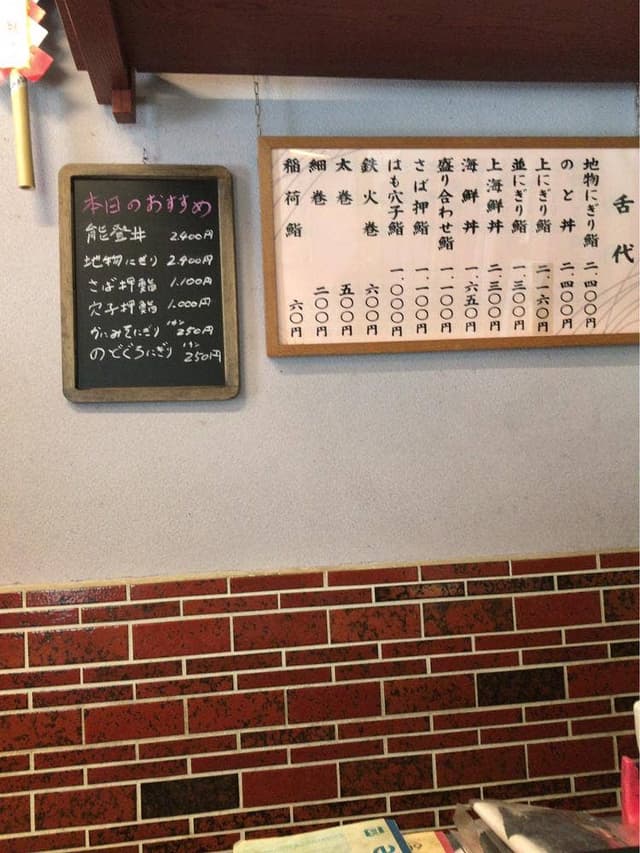 本日のおすすめ
能登丼 2.400円
地物にぎり 2.400円
さば押鮨 1.100円
穴子押鮨 1.000円
かにみそにぎり 1カン 250円
のどぐろにぎり 1カン 250円
舌代
地物にぎり鮨 二、四〇〇円
のと丼 二、四〇〇円
上にぎり鮨 二、一六〇円
並にぎり鮨 一、三〇〇円
上海鮮丼 二、三〇〇円
海鮮丼 一、六五〇円
盛り合わせ鮨 一、一〇〇円
さば押鮨 一、一〇〇円
はも穴子鮨 一、〇〇〇円
鉄火巻 六〇〇円
太巻 五〇〇円
細巻 二〇〇円
稲荷鮨 六〇円